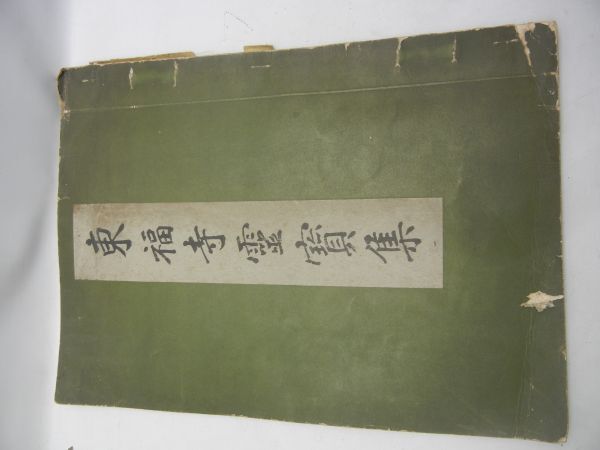 東福寺靈寶集